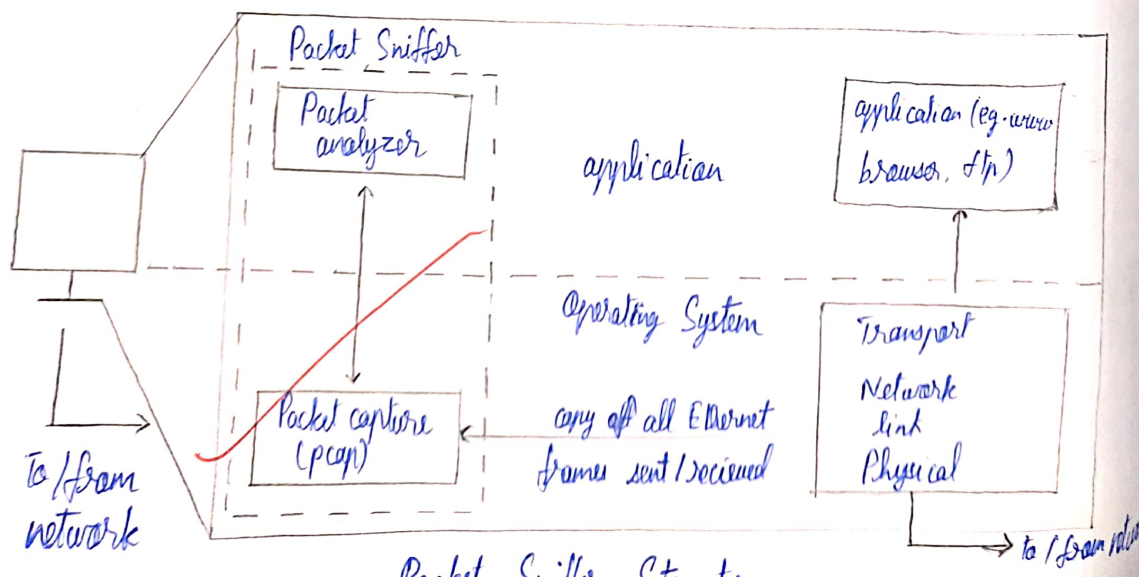 Packet Sniffer
Packet
analyzer
application
application (eg. www
browser, ftp)
Operating System
Transport
Network
link
Physical
Packet capture
(pcap)
copy off all Ethernet
frames sent/recieved
To/from
network
to/from
Packet Sniffer